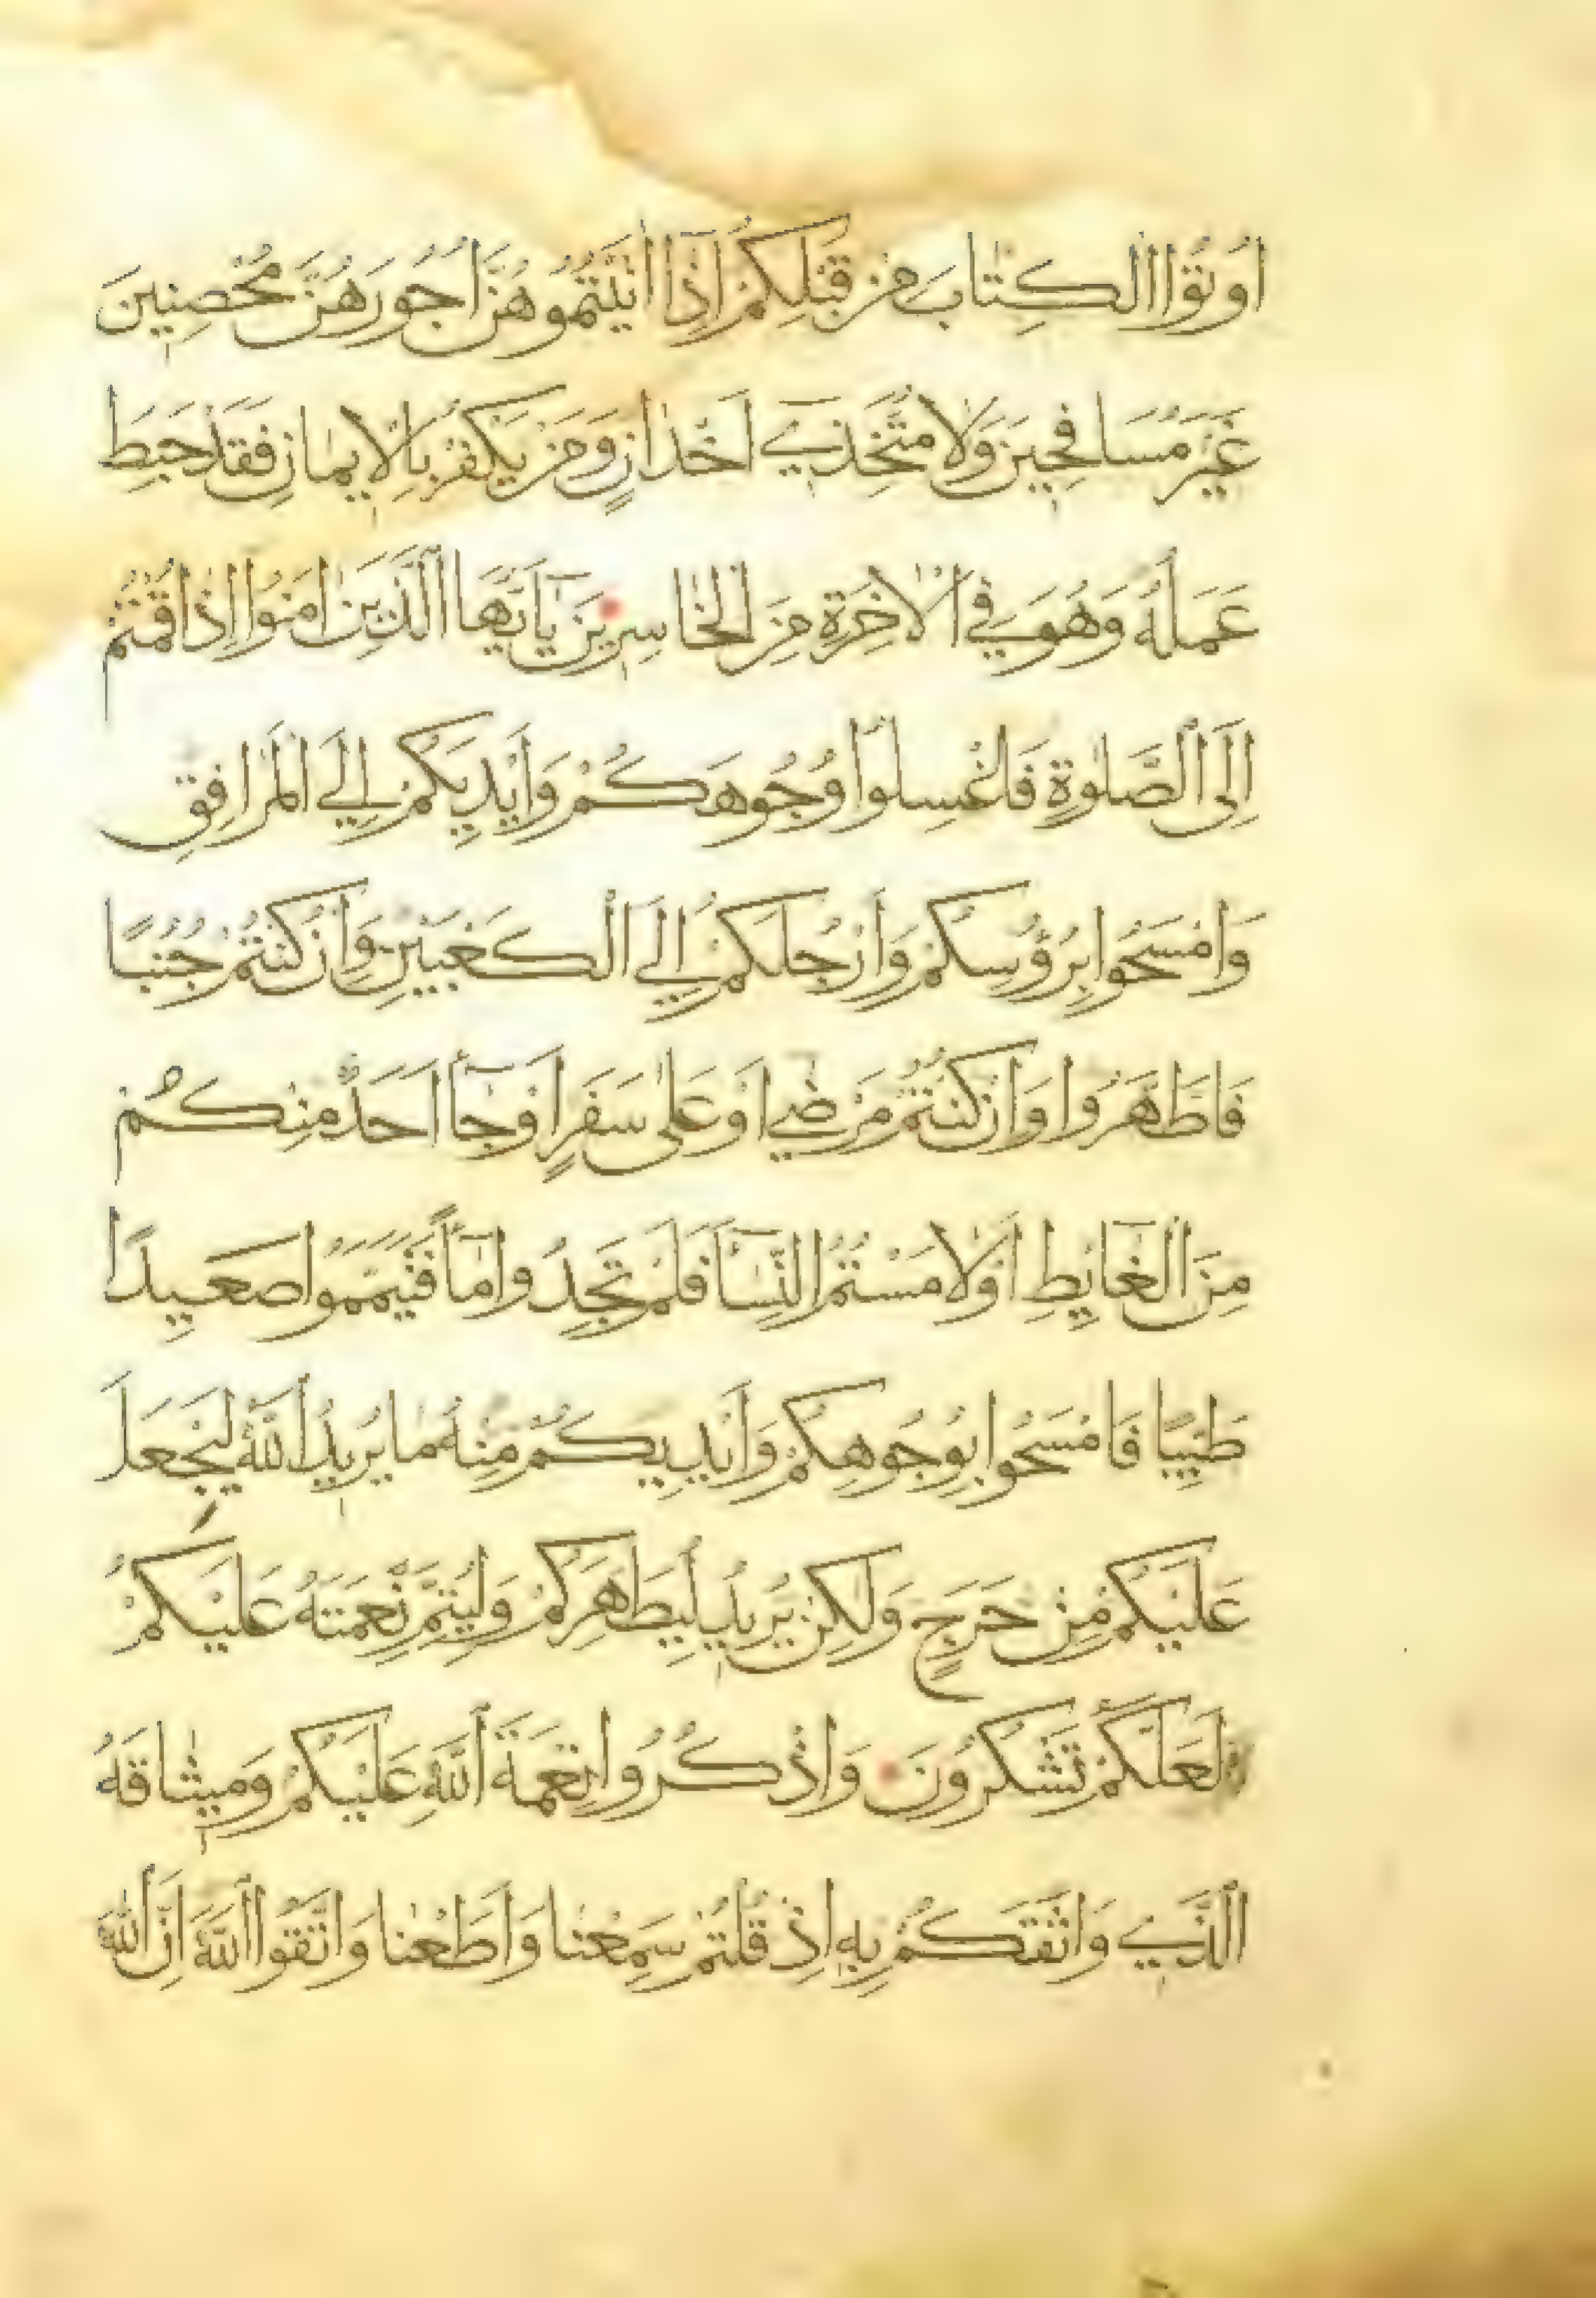 اُوتُوا الكِتَابَ مِن قَبْلِكُمْ اِذَا اٰتَيْتُمُوهُنَّ اُجُورَهُنَّ مُحْصِنِينَ
غَيْرَ مُسَافِحِينَ وَلَا مُتَّخِذِي اَخْدَانٍ وَمَن يَكْفُرْ بِالْاِيمَانِ فَقَدْ حَبِطَ
عَمَلُهُ وَهُوَ فِي الْاٰخِرَةِ مِنَ الْخَاسِرِينَ يَٓا اَيُّهَا الَّذِينَ اٰمَنُوا اِذَا قُمْتُمْ
اِلَى الصَّلٰوةِ فَاغْسِلُوا وُجُوهَكُمْ وَاَيْدِيَكُمْ اِلَي الْمَرَافِقِ
وَامْسَحُوا بِرُؤُسِكُمْ وَاَرْجُلَكُمْ اِلَي الْكَعْبَيْنِ وَاِنْ كُنْتُمْ جُنُبًا
فَاطَّهَّرُوا وَاِنْ كُنْتُمْ مَرْضٰي اَوْ عَلٰى سَفَرٍ اَوْ جَٓاأَ اَحَدٌ مِنْكُمْ
مِنَ الْغَايِٕطِ اَوْ لَامَسْتُمُ النِّسَٓاأَ فَلَمْ تَجِدُوا مَٓاأً فَتَيَمَّمُوا صَعِيدًا
طَيِّبًا فَامْسَحُوا بِوُجُوهِكُمْ وَاَيْدِيكُمْ مِنْهُ مَا يُرِيدُ اللّٰهُ لِيَجْعَلَ
عَلَيْكُمْ مِنْ حَرَجٍ وَلٰكِنْ يُرِيدُ لِيُطَهِّرَكُمْ وَلِيُتِمَّ نِعْمَتَهُ عَلَيْكُمْ
لَعَلَّكُمْ تَشْكُرُونَ وَاذْكُرُوا نِعْمَةَ اللّٰهِ عَلَيْكُمْ وَمِيثَاقَهُ
الَّذِي وَاثَقَكُمْ بِهِ اِذْ قُلْتُمْ سَمِعْنَا وَاَطَعْنَا وَاتَّقُوا اللّٰهَ اِنَّ اللّٰهَ